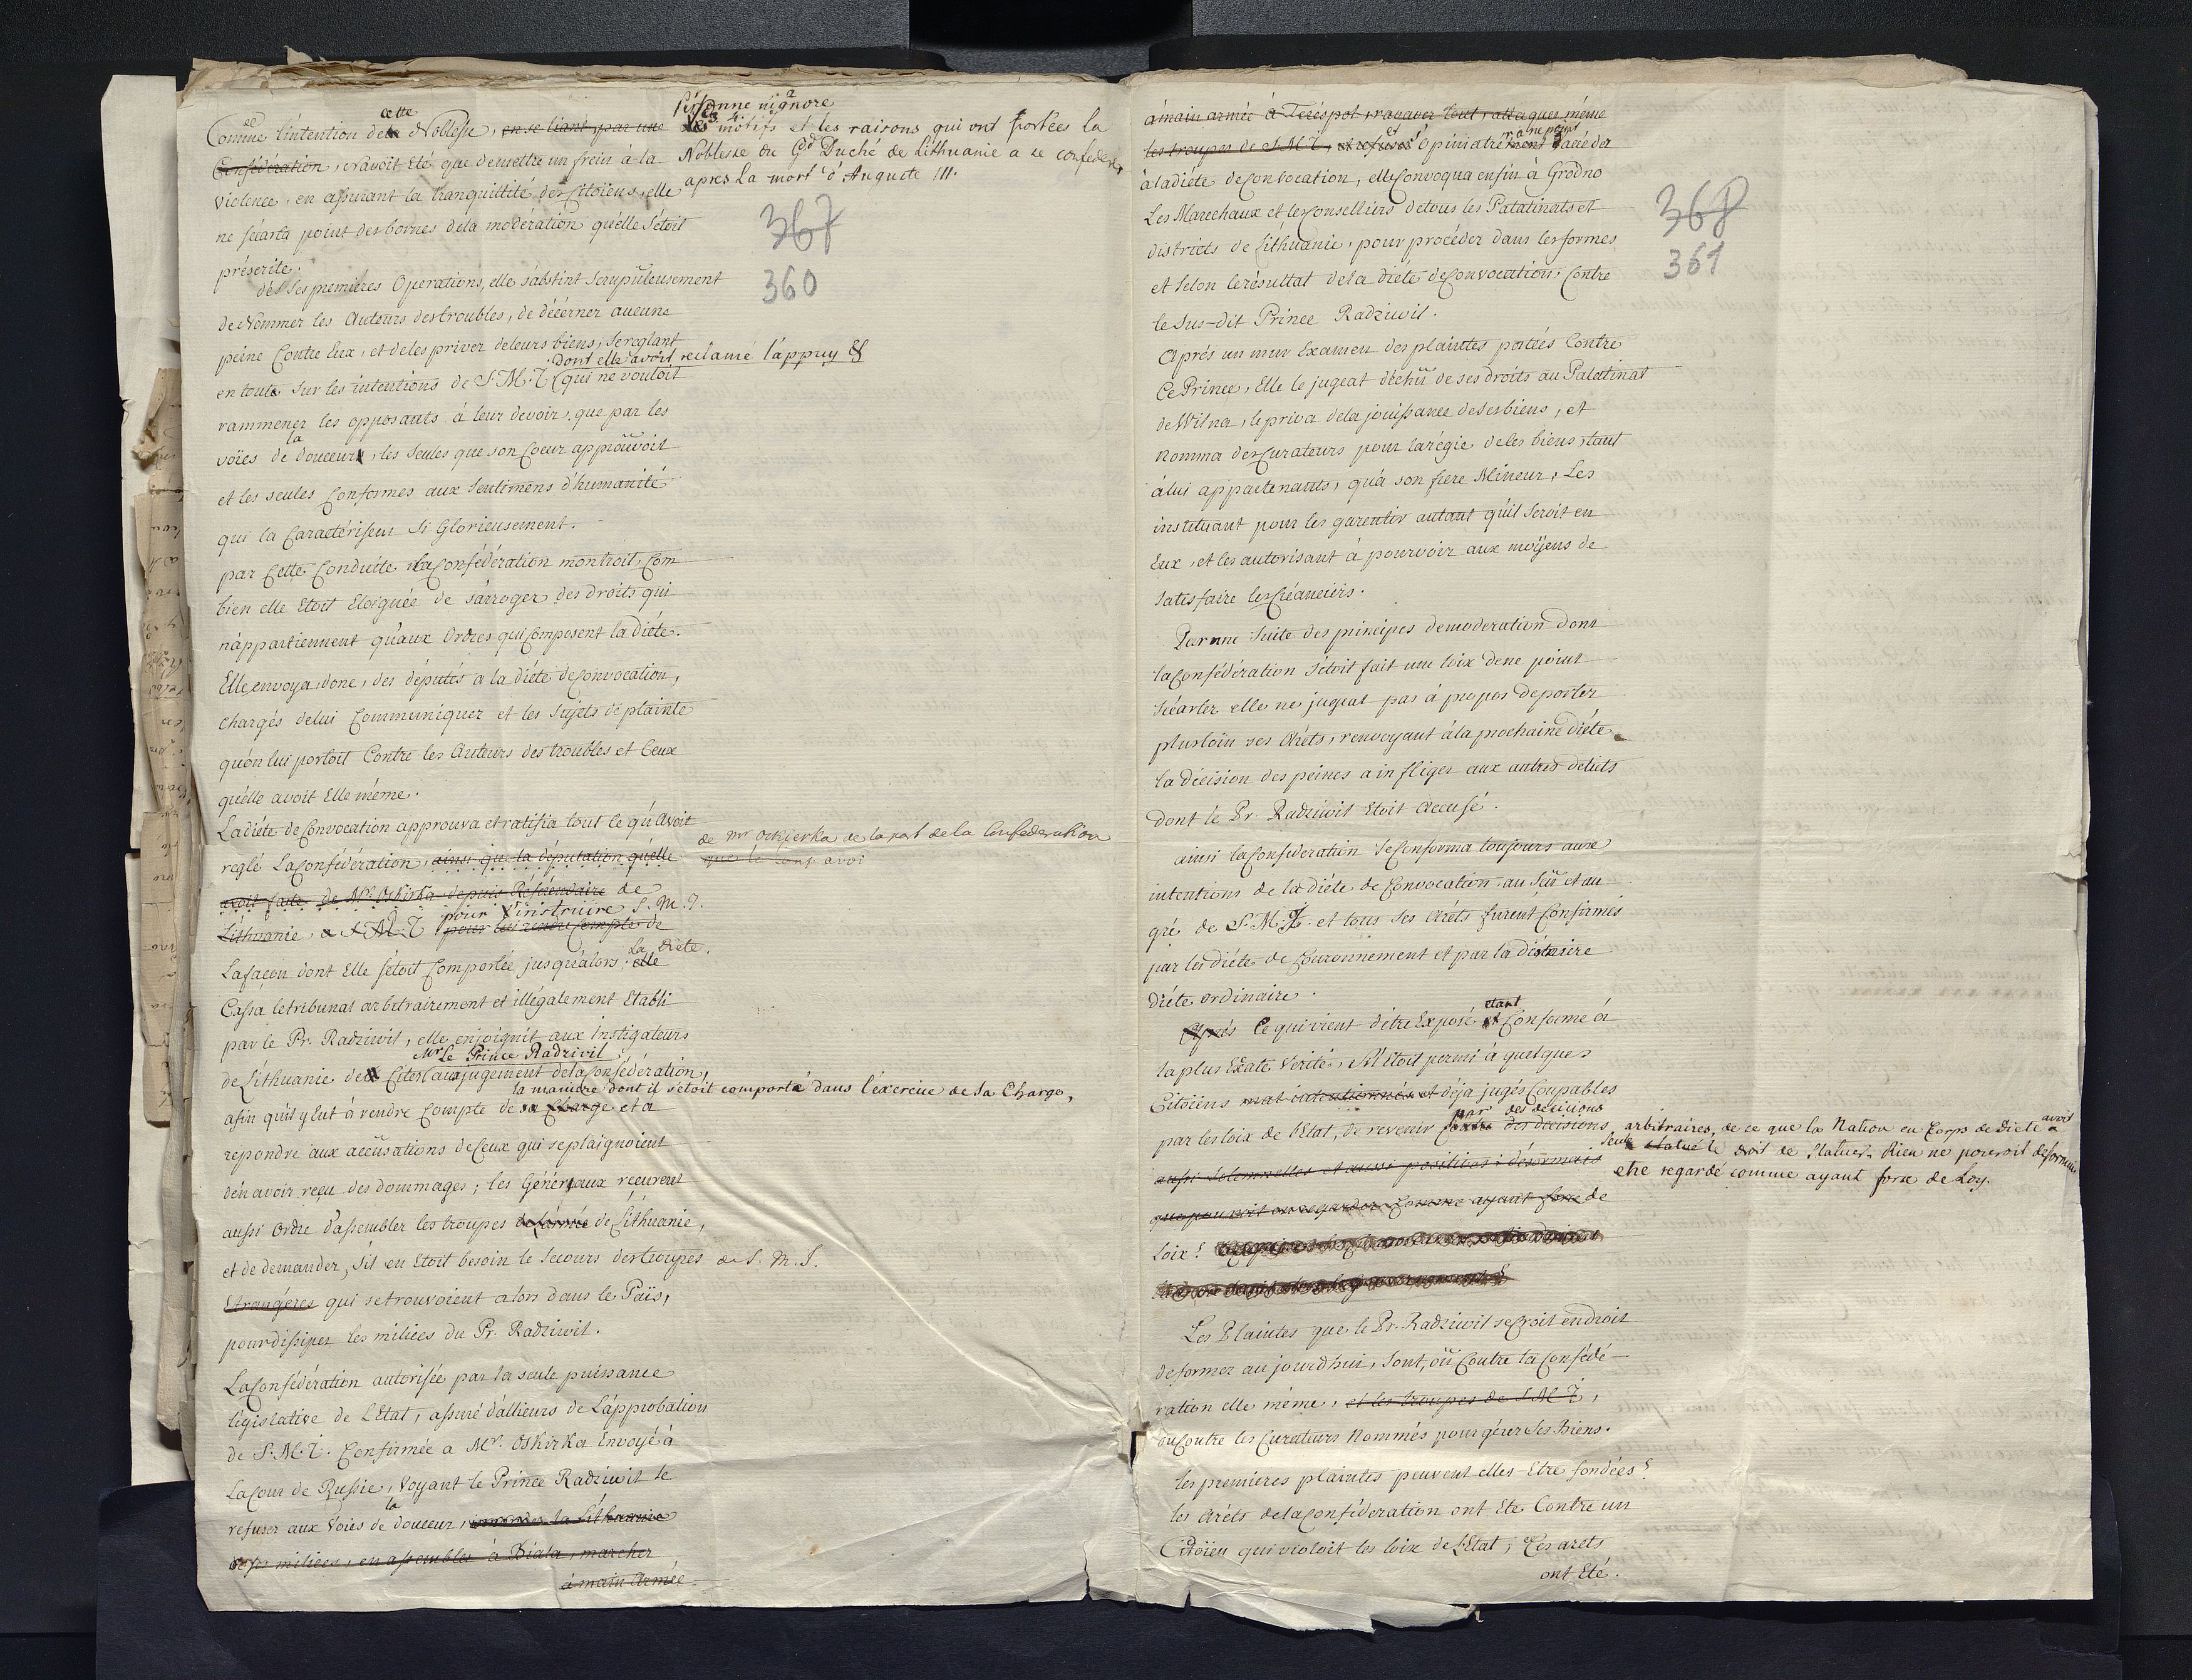 Personne n'ignore
les motifs et les raisons qui ont portées la
Noblesse du Gd Duché de Lithuanie a se confederer,
apres la mort d'Auguste III.
367
360
cette
Comme l'intention de la Noblesse, en se liant, par une
Conféderation, n'avoit Eté que de mettre un frein à la
violence, en assurant la tranquillité des Citoïens, elle
ne s'écarta point des bornes dela modération qu'elle s'étoit
préscrite.
dès ses premières Operations, elle s'abstint Scrupuleusement
de Nommer les Auteurs des troubles, de décerner aucune
peine Contre Eux, et deles priver deleurs biens; se reglant
dont elle avoit reclamé l'appuy &
en toute sur les intentions de S.M.I. (qui ne vouloit
rammener les opposants à leur devoir, que par les
la
voïes de douceur, les Seules que son Coeur approuvoit
et les seules Conformes aux Sentimens d'humanité
qui la Caractérisent Si Glorieusement.
par Cette Conduite la Confédération montroit, Com
bien elle Etoit Eloignée de s'arroger des droits qui
n'appartiennent qu'aux Ordres qui Composent la diéte.
Elle envoya, donc, des députés a la diéte de Convocation,
chargés delui Communiquer et les Sujets de plainte
qu'on lui portoit Contre les Auteurs des troubles et Ceux
qu'elle avoit Elle même.
La diéte de Convocation approuva et ratifia tout le qu'Avoit
reglé La Confédération, ainsi que la députation qu'elle
de Mr Oskierka de la part de la Confederation
avoit faite de Mr. Oskirka depuis Référendaire de
pour l'instruire S.M.I.
Lithuanie, a S.M.I. pour lui rendre Compte de
la Diete.
La façon dont Elle s'étoit Comportée jusqu'alors; elle
Cassa le tribunal arbitrairement et illégalement Etabli
par le Pr. Radziwil, elle enjoignit aux Instigateurs
Mr Le Prince Radzivil
de Lithuanie de Citer au jugement dela Confédération,
la maniere dont il s'etoit comporté dans l'éxercice de sa Charge,
afin qu'il y Eut à rendre Compte de sa Charge et a
repondre aux accüsations de Ceux qui se plaignoient
d'en avoir reçu des dommages; les Généraux reçurent
aussi Ordre d'assembler les troupes de l'armée de Lithuanie,
et de demander, s'il en Etoit besoin le Secours des troupes de S.M.I.
Etrangères qui se trouvoient alors dans le Païs,
pour dissiper les milices du Pr. Radziwil.
La Confédération autorisée par la seule puissance
législative de L'Etat, assuré d'allieurs de L'approbation
de S.M.I. Confirmée a Mr. Oskirka Envoyé à
La Cour de Russie, Voyant le Prince Radziwil se
la
refuser aux Voies de douceur, la Lithuanie
de ses milices, en assembler à Biala, marcher
à main Armée
368
361
à main armée à Teréspol, ravager tout, attaquer même
les troupes de S.M.I. et refuser Opiniatrément d'accéder
à la diéte de Convocation, elle Convoqua enfin à Grodno
Les Marechaux et les Conselliers de tous les Palatinats et
districts de Lithuanie, pour procéder dans les formes
et selon le résultat dela diéte de Convocation, Contre
le Sus-dit Prince Radziwil.
Après un mur Examen des plaintes portées Contre
Ce Prince, Elle le jugeat déchü de ses droits au Palatinat
de Wilna, le priva dela jouissance de ses biens, et
nomma des Curateurs pour la régie de les biens, tant
à lui appartenants, qu'à son frere Mineur, Les
instituant pour les garentir autant qu'il seroit en
Eux, et les autorisant à pourvoir aux moÿens de
Satisfaire les Créanciers.
Par une Suite des principes de moderation dont
la Confédération s'étoit fait une loix de ne point
s'écarter elle ne jugeat pas à propos de porter
plus loin ses Arêts, renvoyant à la prochaine diéte
la décision des peines a infliger aux autres delits
dont le Pr. Radziwil Etoit Accusé.
ainsi la Confederation se Conforma toujours aux
intentions de la diéte de Convocation au Sçü et au
gré de S.M.I. et tous ses Arêts furent Confirmés
par les diéte de Couronnement et par la dérniere
diéte ordinaire.
etant
Après Ce qui vient d'être Exposé et Conforme à
la plus Exate Verité, s'il étoit permi à quelques
Citoïens mal intentionnés et déja jugés Coupables
par des decisions
par les loix de l'Etat, de revenir Contre des decisions arbitraires, de ce que la Nation en Corps de Diete avoit
seule statué le droit de Statuer, Rien ne pouroit desormais
aussi Solemnelles et aussi positives; désormais
etre regardé comme ayant force de Loy.
que pouroit on regarder Comme ayant force de
loix?
Les Plaintes que le Pr. Radziwil se Croit en droit
de former aujourd'hui, sont, où Contre la Confédé-
ration elle même, et les troupes de S.M.I.,
ou Contre les Curateurs Nommés pour gérer ses Biens.
les premieres plaintes peuvent elles Etre fondées?
les Arêts dela Confédération ont Eté Contre un
Citoïen qui violoit les loix de l'Etat; Ces arets
ont Eté.